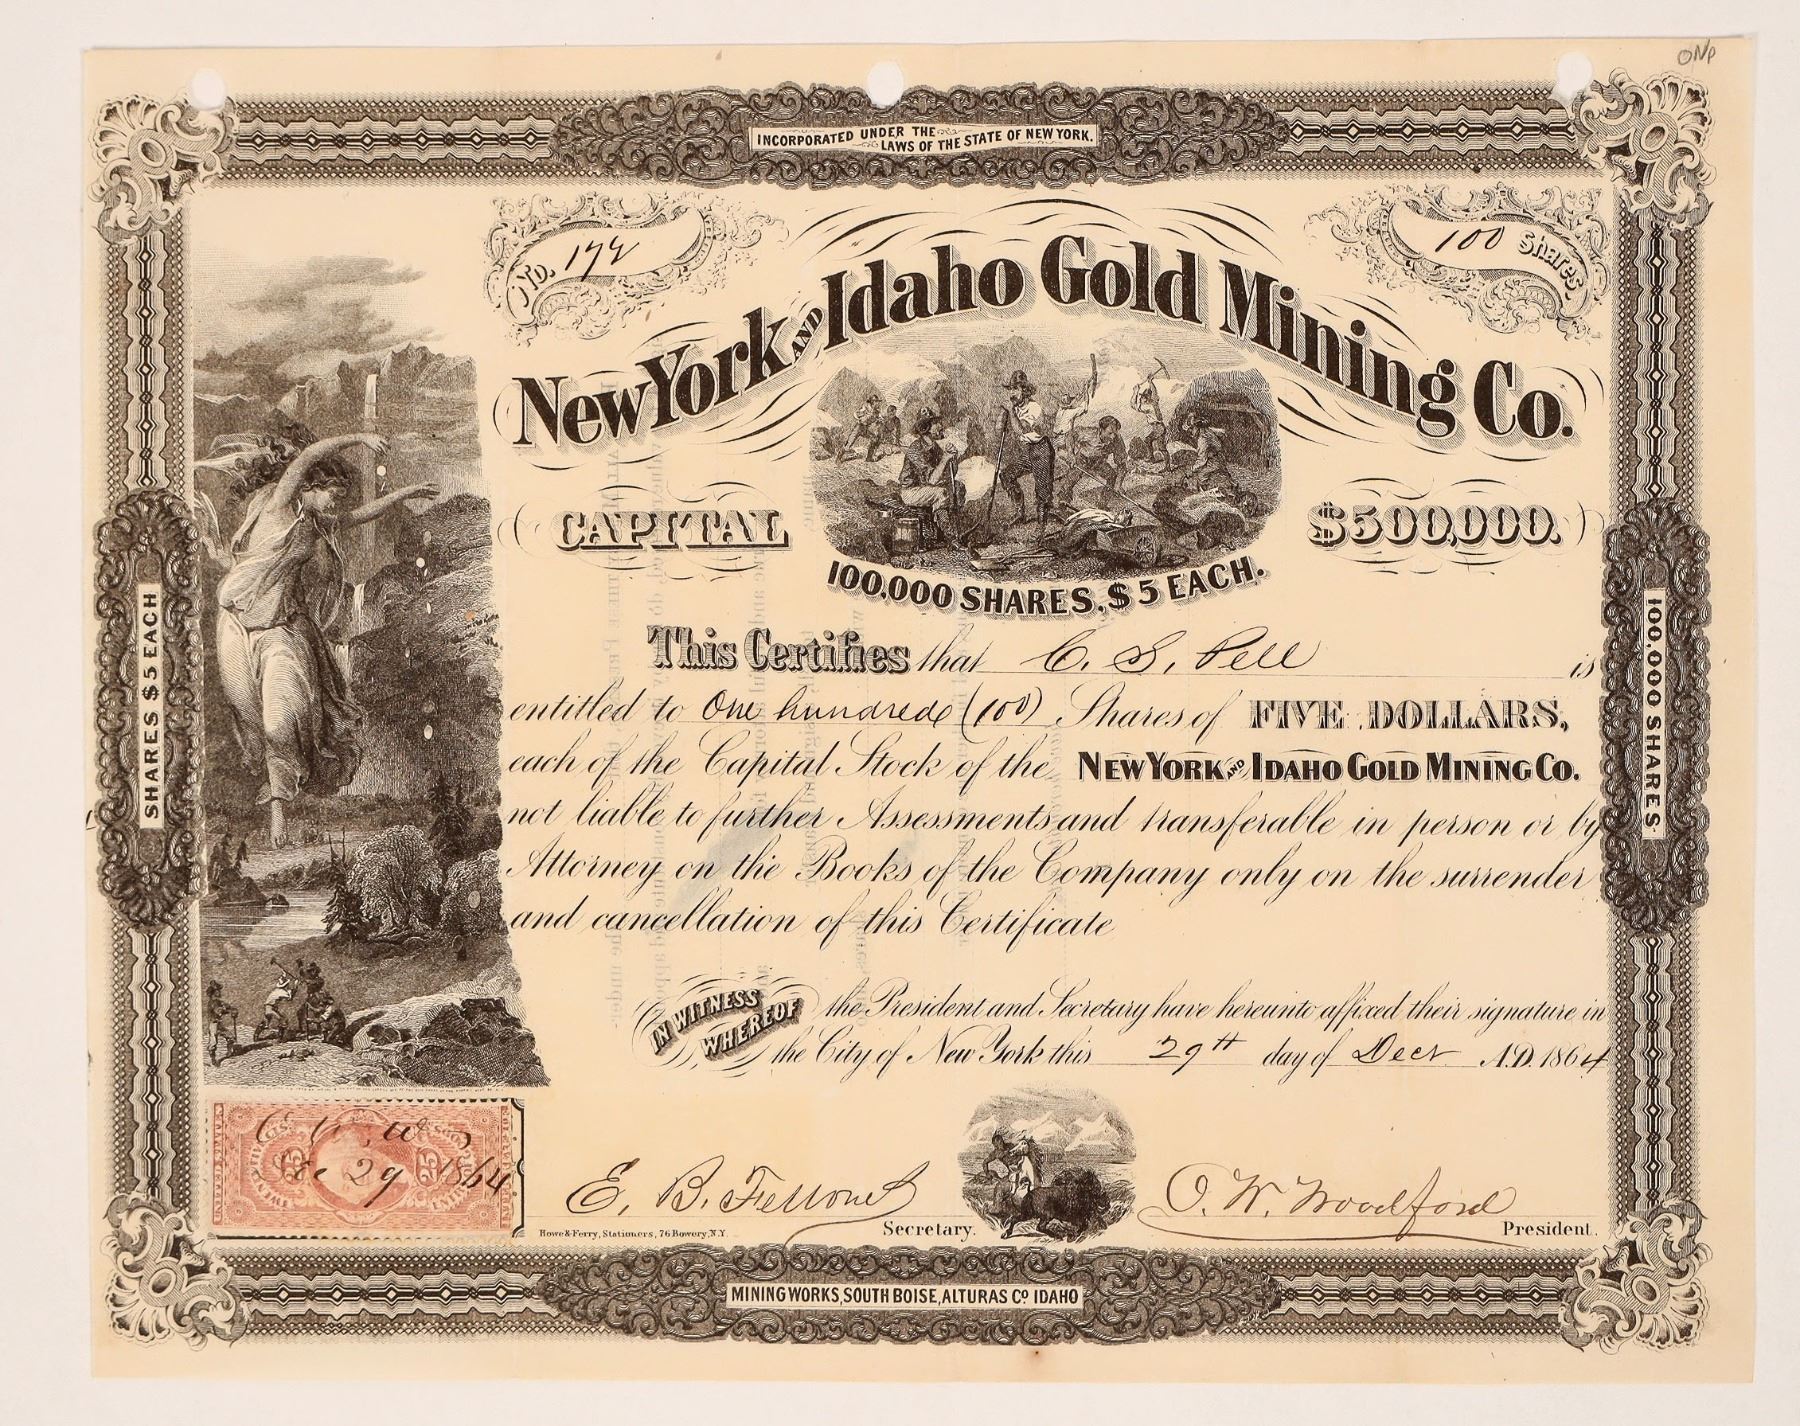 ONP
INCORPORATED UNDER THE
LAWS OF THE STATE OF NEW YORK.
No. 172
100 Shares
New York AND Idaho Gold Mining Co.
CAPITAL
$500,000.
100,000 SHARES, $5 EACH.
SHARES $5 EACH
100,000 SHARES
This Certifies that C. S. Pell is
entitled to One hundred (100) Shares of FIVE DOLLARS,
each of the Capital Stock of the NEW YORK AND IDAHO GOLD MINING CO.
not liable to further Assessments and transferable in person or by
Attorney on the Books of the Company only on the surrender
and cancellation of this Certificate
IN WITNESS WHEREOF the President and Secretary have hereunto affixed their signature in
the City of New York this 29th day of Decr A.D. 1864
25 25
Dec 29 1864
E. B. Fellows
Secretary.
O. W. Woodford
President.
Howe & Ferry, Stationers, 76 Bowery, N.Y.
MINING WORKS, SOUTH BOISE, ALTURAS Co IDAHO